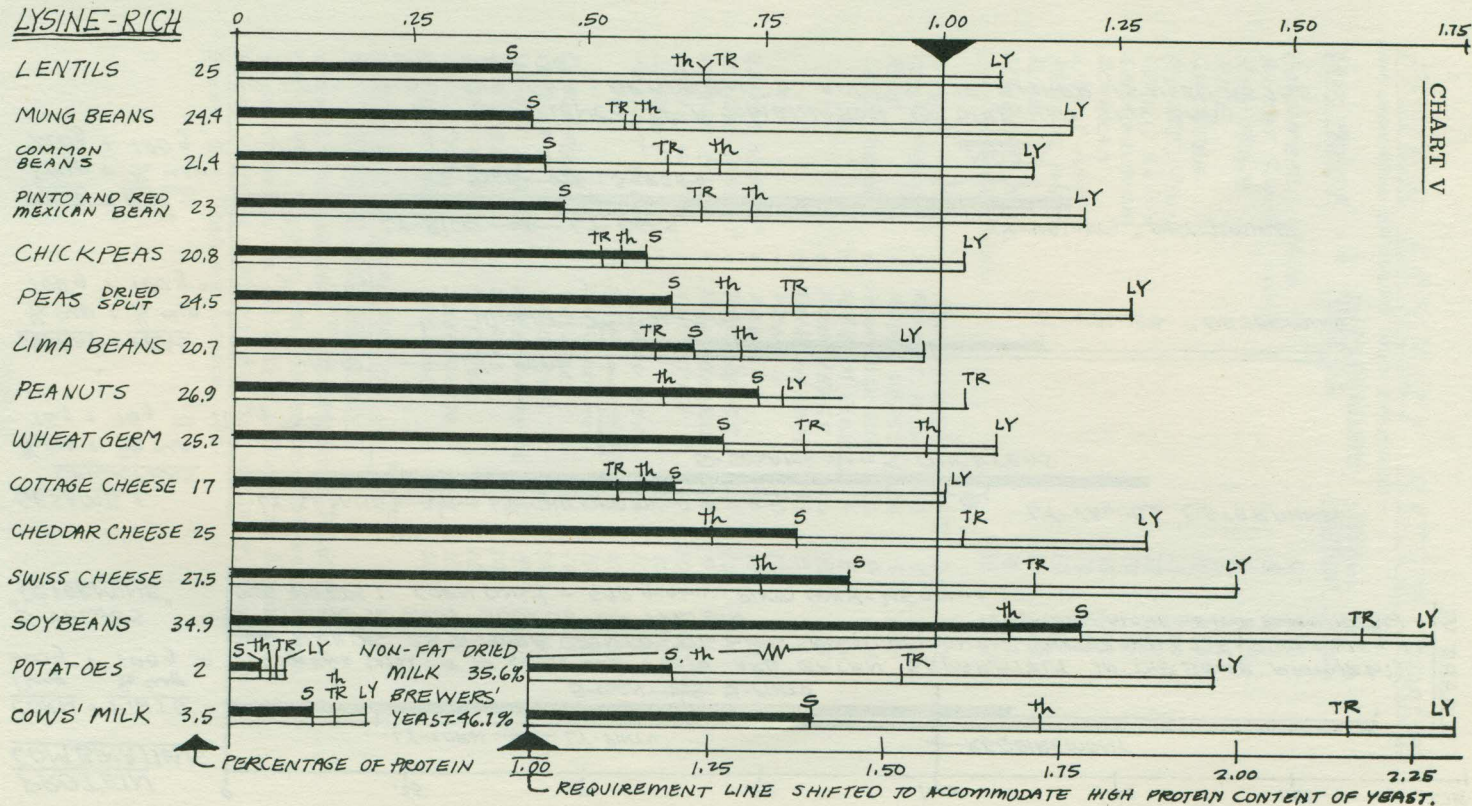 LYSINE-RICH
0 .25 .50 .75 1.00 1.25 1.50 1.75
CHART V
LENTILS 25 S th TR LY
MUNG BEANS 24.4 S TR Th LY
COMMON
BEANS 21.4 S TR th LY
PINTO AND RED
MEXICAN BEAN 23 S TR Th LY
CHICKPEAS 20.8 TR th S LY
PEAS DRIED
SPLIT 24.5 S th TR LY
LIMA BEANS 20.7 TR S th LY
PEANUTS 26.9 th S LY TR
WHEAT GERM 25.2 S TR Th LY
COTTAGE CHEESE 17 TR th S LY
CHEDDAR CHEESE 25 th S TR LY
SWISS CHEESE 27.5 th S TR LY
SOYBEANS 34.9 th S TR LY
POTATOES 2 S Th TR LY
NON-FAT DRIED
MILK 35.6% S, th TR LY
COWS' MILK 3.5 S th TR LY
BREWERS'
YEAST 46.1% S th TR LY
PERCENTAGE OF PROTEIN
1.00 1.25 1.50 1.75 2.00 2.25
REQUIREMENT LINE SHIFTED TO ACCOMMODATE HIGH PROTEIN CONTENT OF YEAST.